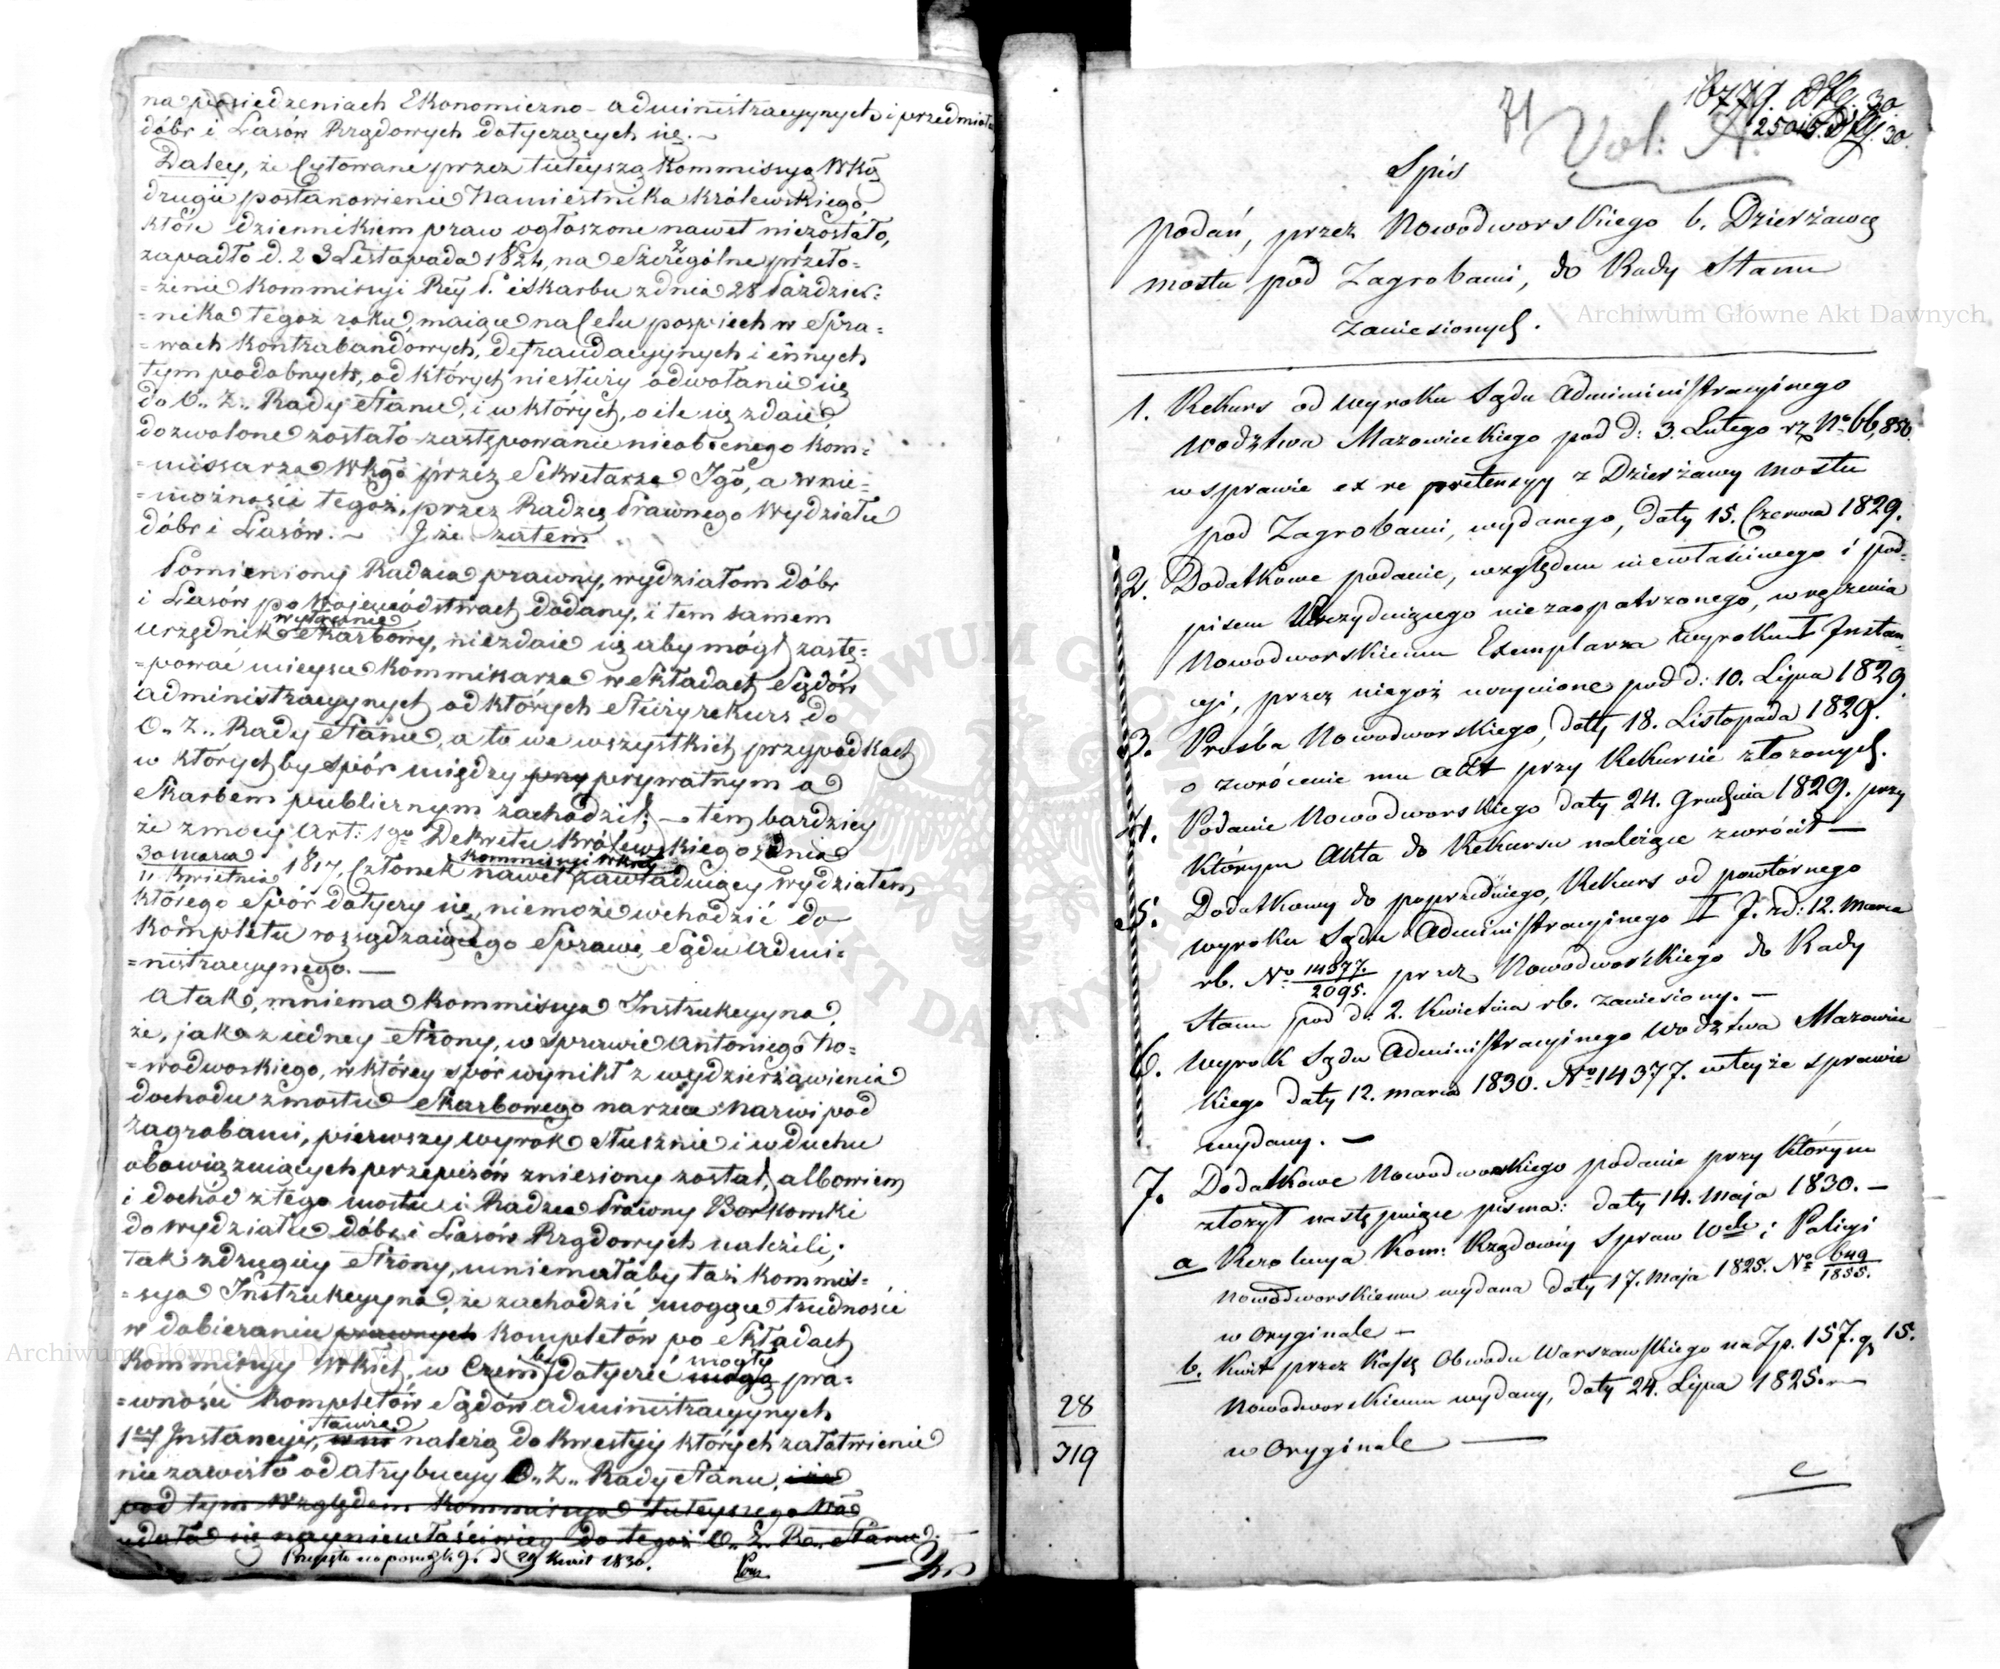 na posiedzeniach Ekonomiczno-administracyynych i przedmiotu
dóbr i Lasów Rządowych dotyczących się. –
Daley, że Cytowane przez tuteyszą Kommissyą Wką
drugie postanowienie Namiestnika Królewskiego
które dziennikiem praw ogłoszone nawet niezostało,
zapadło d. 23 Listopada 1824, na Szczególne przeło=
=żenie Kommissyi Rey P. i Skarbu z dnia 28 Paździer=
=nika tegoż roku, maiące na Celu pospiech w Spra=
=wach Kontrabandowych, defraudacyynych i innych
tym podobnych, od których niesłuży odwołanie się
do O. Z. Rady Stanu, i w których, o ile się zdaie,
dozwolone zostało zastępowanie nieobecnego Kom=
=missarza Wkgo przez Sekretarza Jgo, a w nie=
=możności tegoż, przez Radzcę Prawnego Wydziału
dóbr i Lasów. – J że zatem
Pomieniony Radzca prawny, wydziałom dóbr
i Lasów po Województwach dodany, i tem samem
wyłącznie
urzędnik Skarbowy, niezdaie się aby mógł zastę=
=pować mieysce Kommissarza w Składach Sądów
administracyynych od których Służy rekurs do
O. Z. Rady Stanu, a to we wszystkich przypadkach
w których by spór między pry prywatnym a
Skarbem publicznym zachodził; – tem bardziey
że z mocy Art: 1go Dekretu Królewskiego z dnia
30 marca
11 Kwietnia 1817, Członek nawet Kommissyi Wkiey zawiaduiący wydziałem,
którego Spór dotyczy się, niemoże wchodzić do
Kompletu rozsądzaiącego Sprawę, Sądu admi=
=nistracyynego. –
A tak, mniema Kommissya Instrukcyyna,
że, jako z iedney Strony, w sprawie Antoniego No=
=wodworskiego, w którey spór wynikł z wydzierżawienia
dochodu z mostu Skarbowego na rzece Narwi pod
Zagrobami, pierwszy wyrok słusznie i w duchu
obowiązuiących przepisów zniesiony został, albowiem
i dochód z tego mostu i Radzca Prawny Borkowski
do wydziału dóbr i Lasów Rządowych należeli;
tak z drugiey Strony, mniemałaby taż Kommis=
=sya Instrukcyyna, że zachodzić mogące trudności
w dobieraniu prawnych Kompletów po Składach
Kommissyy Wkich, w czem by dotyczeć mogły mogą pra=
=wności Kompletów Sądów administracyynych
1ey Instancyi, należą do kwestyy których załatwienie
nie zawisło od atrybucyy O. Z. Rady Stanu,
pod tym względem Kommissya tuteyszego Wa
udała się nayniewłaściwiey do tegoż O. Z. R. Stanu. –
Przyięto na d. 29 Kwiet 1830.
71
Vol: A.
16779. 30
25015. 30.
Spis
podań, przez Nowodworskiego b. Dzierżawcę
mostu pod Zagrobami, do Rady Stanu
zaniesionych.
1. Rekurs od wyroku Sądu Administracyinego
Wodztwa Mazowieckiego pod d: 3. Lutego rz No 66,850.
w sprawie ex re pretensyy z Dzierżawy mostu
pod Zagrobami, wydanego, daty 15. Czerwca 1829.
2. Dodatkowe podanie, względem niewłaściwego i pod=
pisem Urzędniczego niezaopatrzonego, wręczenia
Nowodworskiemu Exemplarza wyroku I Instan=
cyi, przez niegoż uczynione pod d: 10. Lipca 1829.
3. Prośba Nowodworskiego, daty 18. Listopada 1829.
o zwrócenie mu akt przy Rekursie złożonych.
4. Podanie Nowodworskiego daty 24. Grudnia 1829. przy
którym Akta do Rekursu należące zwrócił –
5. Dodatkowy do poprzedniego, Rekurs od powtórnego
wyroku Sądu Administracyinego I J. z d: 12. Marca
rb. No 14377./2095. przez Nowodworskiego do Rady
Stanu pod d: 2. Kwietnia rb. zaniesiony. –
6. Wyrok Sądu Administracyinego Wodztwa Mazowiec
kiego daty 12. marca 1830. No 14377. w teyże sprawie
wydany. –
7. Dodatkowe Nowodworskiego podanie przy którym
złożył następuiące pisma: daty 14. Maja 1830. –
a Rezolucya Kom: Rządowéy Spraw Wch i Policyi
Nowodworskiemu wydana daty 17. Maja 1825. No 649/1855.
w Oryginale –
b. Kwit przez Kassę Obwodu Warszawskiego na Zp. 157. g 15.
Nowodworskiemu wydany, daty 24. Lipca 1825. –
w Oryginale –
28
319
Archiwum Główne Akt Dawnych
Archiwum Główne Akt Dawnych
ARCHIWUM GŁÓWNE AKT DAWNYCH